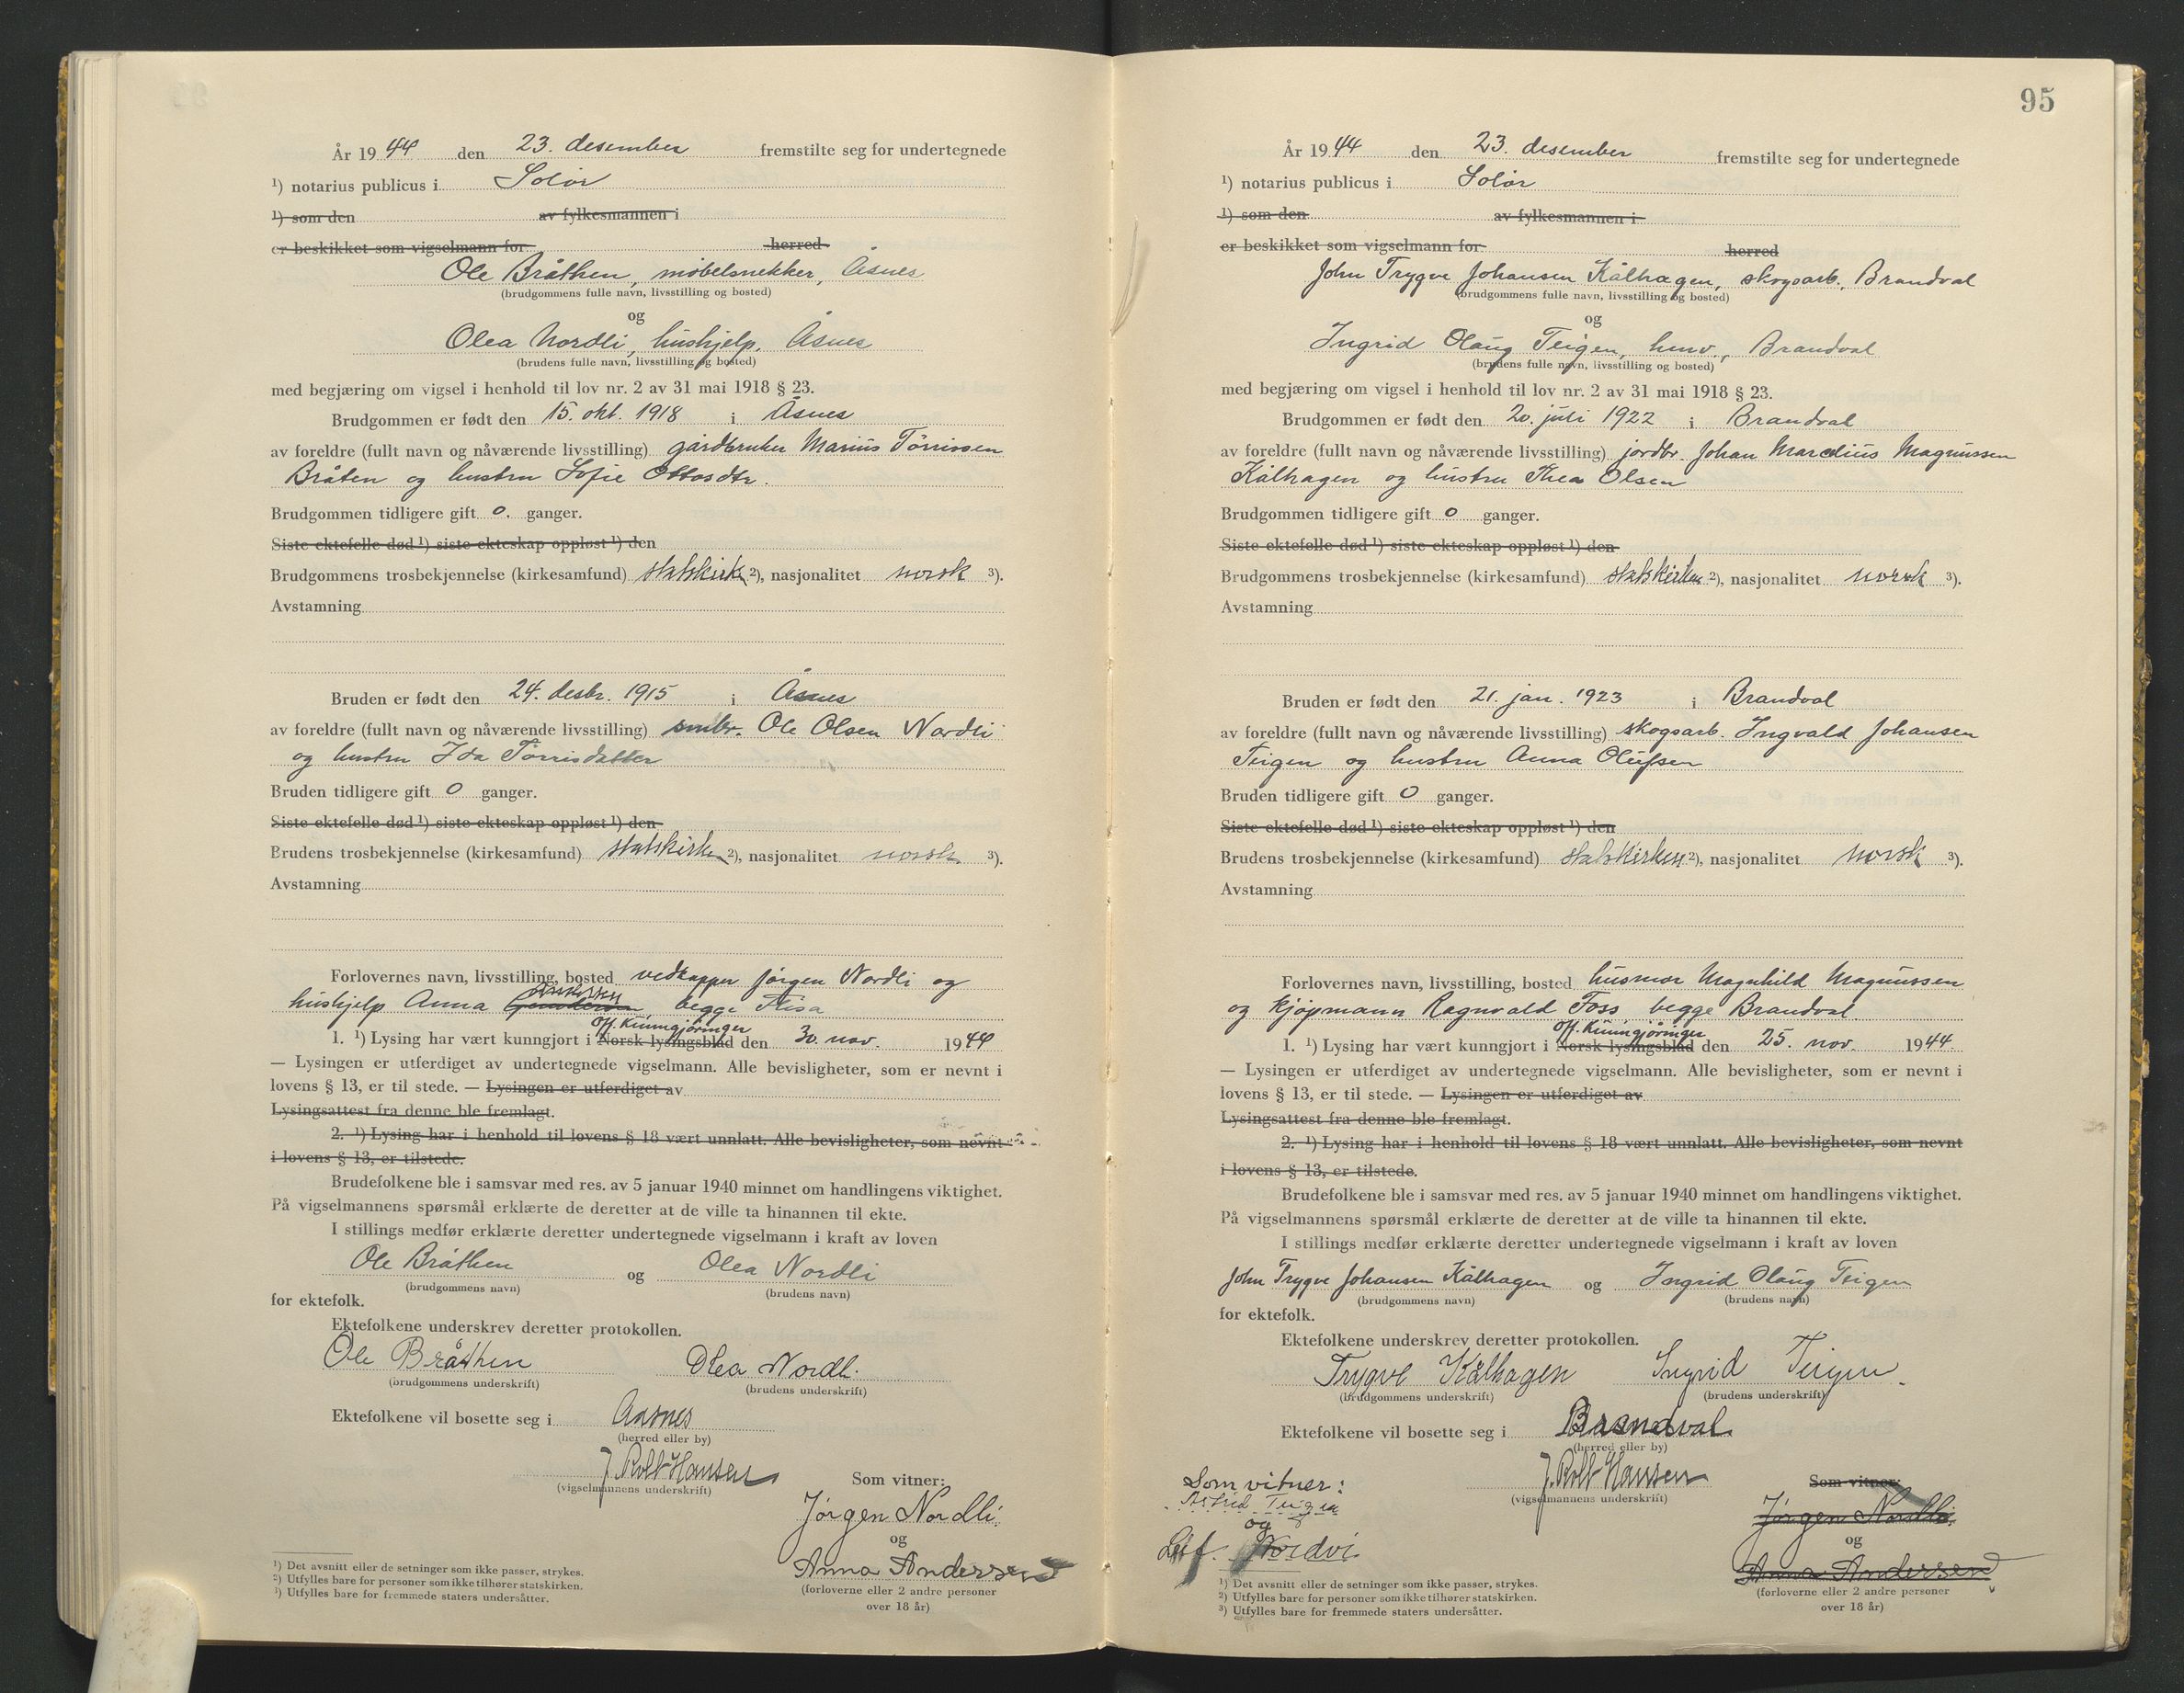 År 1944 den 23. desember fremstilte seg for undertegnede
¹) notarius publicus i Solør
¹) som den av fylkesmannen i
er beskikket som vigselmann for herred
Ole Bråthen, møbelsnekker, Åsnes
(brudgommens fulle navn, livsstilling og bosted)
og
Olea Nordli, hushjelp, Åsnes
(brudens fulle navn, livsstilling og bosted)
med begjæring om vigsel i henhold til lov nr. 2 av 31 mai 1918 § 23.
Brudgommen er født den 15. okt. 1918 i Åsnes
av foreldre (fullt navn og nåværende livsstilling) gårdbruker Marius Tørrissen
Bråten og hustru Sofie Ottosdtr.
Brudgommen tidligere gift 0. ganger.
Siste ektefelle død ¹) siste ekteskap oppløst ¹) den
Brudgommens trosbekjennelse (kirkesamfund) statskirken ²), nasjonalitet norsk ³).
Avstamning
Bruden er født den 24. desbr. 1915 i Åsnes
av foreldre (fullt navn og nåværende livsstilling) smbr. Ole Olsen Nordli
og hustru Ida Tørrisdatter
Bruden tidligere gift 0 ganger.
Siste ektefelle død ¹) siste ekteskap oppløst ¹) den
Brudens trosbekjennelse (kirkesamfund) statskirken ²), nasjonalitet norsk ³).
Avstamning
Forlovernes navn, livsstilling, bosted vedkapper Jørgen Nordli og
Andersen
hushjelp Anna begge Flisa
off. kunngjøringer
1. ¹) Lysing har vært kunngjort i Norsk lysingsblad den 30. nov. 1944
— Lysingen er utferdiget av undertegnede vigselmann. Alle bevisligheter, som er nevnt i
lovens § 13, er til stede. — Lysingen er utferdiget av
Lysingsattest fra denne ble fremlagt.
2. ¹) Lysing har i henhold til lovens § 18 vært unnlatt. Alle bevisligheter, som nevnt
i lovens § 13, er tilstede.
Brudefolkene ble i samsvar med res. av 5 januar 1940 minnet om handlingens viktighet.
På vigselmannens spørsmål erklærte de deretter at de ville ta hinannen til ekte.
I stillings medfør erklærte deretter undertegnede vigselmann i kraft av loven
Ole Bråthen og Olea Nordli
(brudgommens navn) (brudens navn)
for ektefolk.
Ektefolkene underskrev deretter protokollen.
Ole Bråthen Olea Nordli.
(brudgommens underskrift) (brudens underskrift)
Ektefolkene vil bosette seg i Aasnes
(herred eller by)
J. Rolt Hansen
(vigselmannens underskrift)
Som vitner:
Jørgen Nordli.
og
Anna Andersen
(forloverne eller 2 andre personer
over 18 år)
¹) Det avsnitt eller de setninger som ikke passer, strykes.
²) Utfylles bare for personer som ikke tilhører statskirken.
³) Utfylles bare for fremmede staters undersåtter.
95
År 1944 den 23. desember fremstilte seg for undertegnede
¹) notarius publicus i Solør
¹) som den av fylkesmannen i
er beskikket som vigselmann for herred
John Trygve Johansen Kålhagen, skogsarb., Brandval
(brudgommens fulle navn, livsstilling og bosted)
og
Ingrid Olaug Teigen, hmv., Brandval
(brudens fulle navn, livsstilling og bosted)
med begjæring om vigsel i henhold til lov nr. 2 av 31 mai 1918 § 23.
Brudgommen er født den 20. juli 1922 i Brandval
av foreldre (fullt navn og nåværende livsstilling) jordbr. Johan Marelius Magnussen
Kålhagen og hustru Thea Olsen
Brudgommen tidligere gift 0 ganger.
Siste ektefelle død ¹) siste ekteskap oppløst ¹) den
Brudgommens trosbekjennelse (kirkesamfund) statskirken ²), nasjonalitet norsk ³).
Avstamning
Bruden er født den 21. jan. 1923 i Brandval
av foreldre (fullt navn og nåværende livsstilling) skogsarb. Ingvald Johansen
Teigen og hustru Anna Olufsen
Bruden tidligere gift 0 ganger.
Siste ektefelle død ¹) siste ekteskap oppløst ¹) den
Brudens trosbekjennelse (kirkesamfund) statskirken ²), nasjonalitet norsk ³).
Avstamning
Forlovernes navn, livsstilling, bosted husmor Magnhild Magnussen
og kjøpmann Ragnvald Foss begge Brandval.
off. kunngjøringer
1. ¹) Lysing har vært kunngjort i Norsk lysingsblad den 25. nov. 1944.
— Lysingen er utferdiget av undertegnede vigselmann. Alle bevisligheter, som er nevnt i
lovens § 13, er til stede. — Lysingen er utferdiget av
Lysingsattest fra denne ble fremlagt.
2. ¹) Lysing har i henhold til lovens § 18 vært unnlatt. Alle bevisligheter, som nevnt
i lovens § 13, er tilstede.
Brudefolkene ble i samsvar med res. av 5 januar 1940 minnet om handlingens viktighet.
På vigselmannens spørsmål erklærte de deretter at de ville ta hinannen til ekte.
I stillings medfør erklærte deretter undertegnede vigselmann i kraft av loven
John Trygve Johansen Kålhagen og Ingrid Olaug Teigen
(brudgommens navn) (brudens navn)
for ektefolk.
Ektefolkene underskrev deretter protokollen.
Trygve Kålhagen Ingrid Teigen.
(brudgommens underskrift) (brudens underskrift)
Ektefolkene vil bosette seg i Brandval
(herred eller by)
J. Rolt Hansen
(vigselmannens underskrift)
Som vitner:
Astrid Teigen
og
Leif. Nordvi
Som vitner:
Jørgen Nordli.
og
Anna Andersen
(forloverne eller 2 andre personer
over 18 år)
¹) Det avsnitt eller de setninger som ikke passer, strykes.
²) Utfylles bare for personer som ikke tilhører statskirken.
³) Utfylles bare for fremmede staters undersåtter.